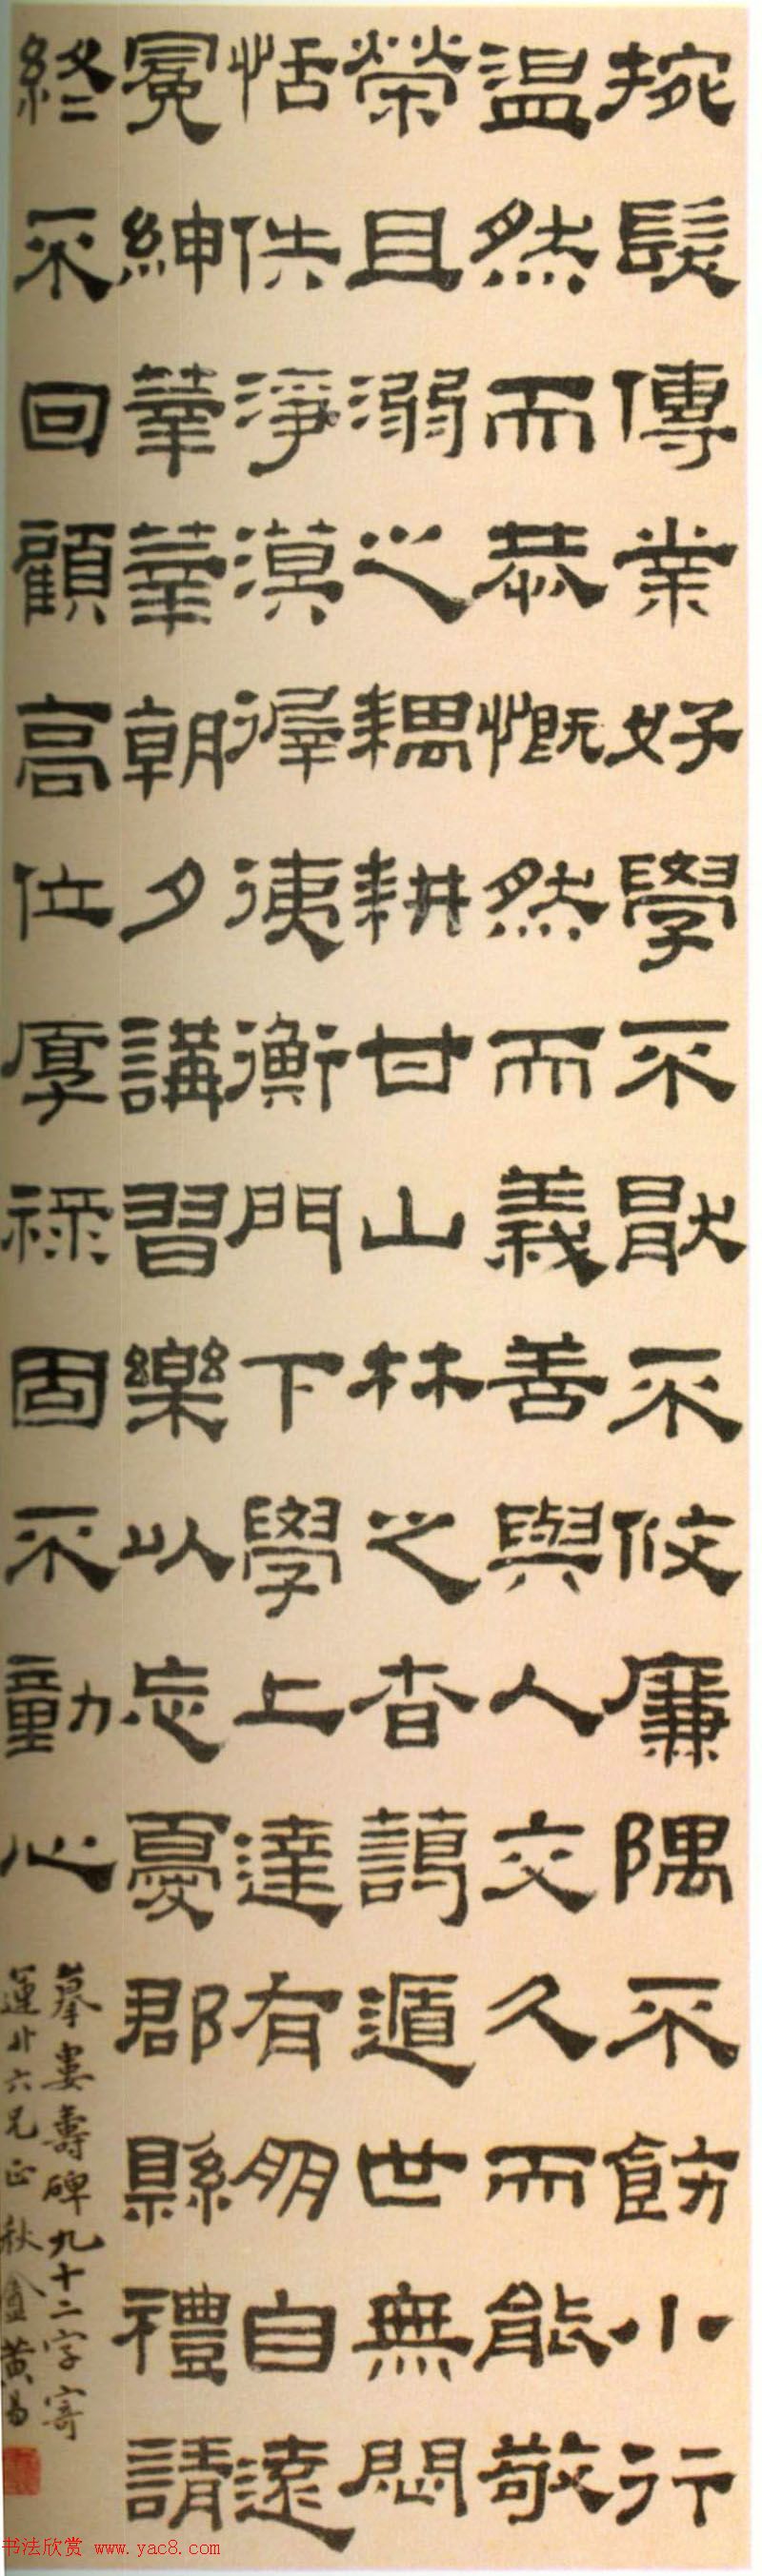 捥髮傳業好學不猒不攸廉隅不飭小行
温然而恭慨然而義善與人交久而能敬
榮且溺之耦耕甘山林之杳藹遁世無悶
恬佚淨漠徲𢓡衡門下學上達有朋自遠
冕紳莘莘朝夕講習樂以忘憂郡縣禮請
終不回顧高位厚祿固不動心
摹婁壽碑九十二字寄
六兄正秋盦黃易
书法欣赏 www.yac8.com